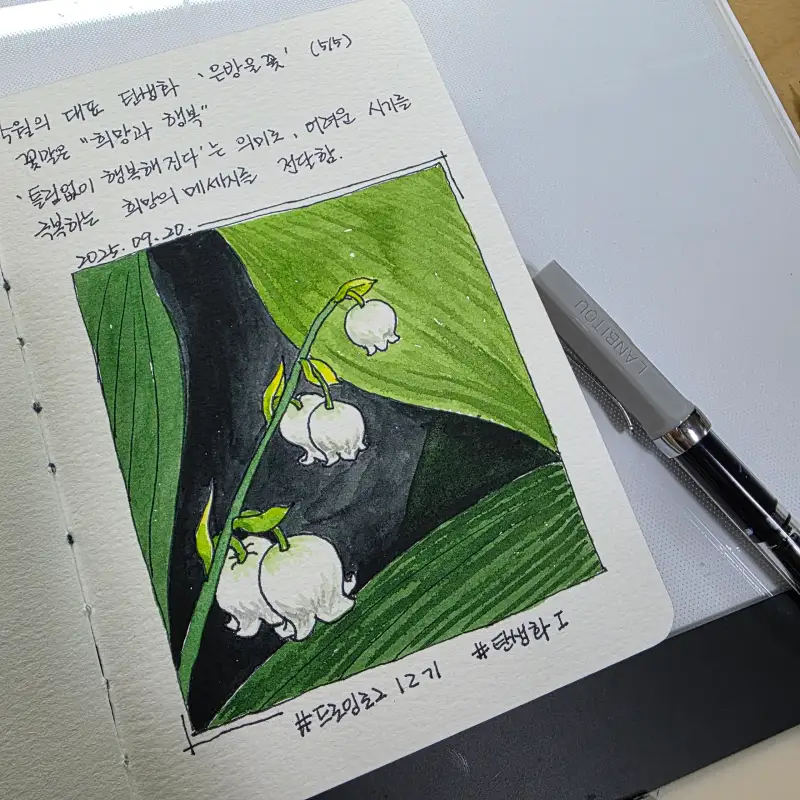 5월의 대표 탄생화 '은방울꽃' (5/5)
꽃말은 "희망과 행복"
'틀림없이 행복해진다'는 의미로, 어려운 시기를
극복하는 희망의 메세지를 전달함.
2025.09.20.
#드로잉로그 12기 #탄생화 I
LANBITOU